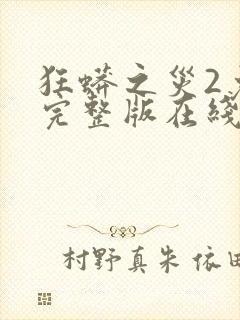 狂蟒之災2
完整版在綫
村野真朱 依田